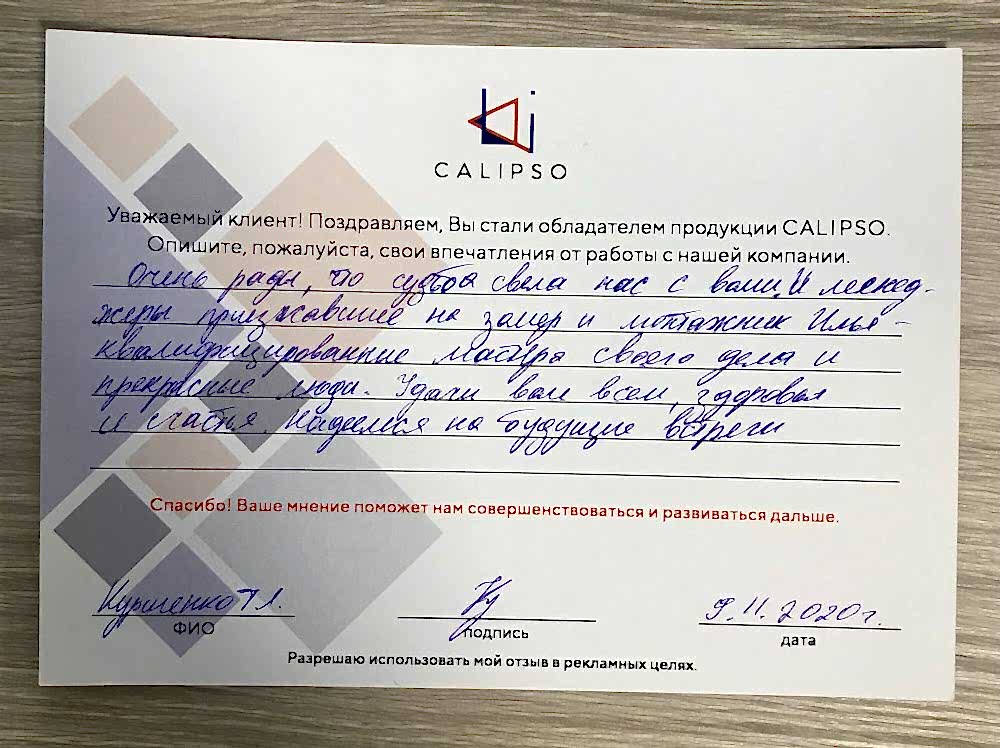 CALIPSO
Уважаемый клиент! Поздравляем, Вы стали обладателем продукции CALIPSO.
Опишите, пожалуйста, свои впечатления от работы с нашей компании.
Очень рады, что судьба свела нас с вами. И менед-
жеры приезжавшие на замер и монтажник Илья -
квалифицированные мастера своего дела и
прекрасные люди. Удачи вам всем, здоровья
и счастья. Надеемся на будущие встречи
Спасибо! Ваше мнение поможет нам совершенствоваться и развиваться дальше.
Т.Л. 9.11.2020г.
ФИО подпись дата
Разрешаю использовать мой отзыв в рекламных целях.